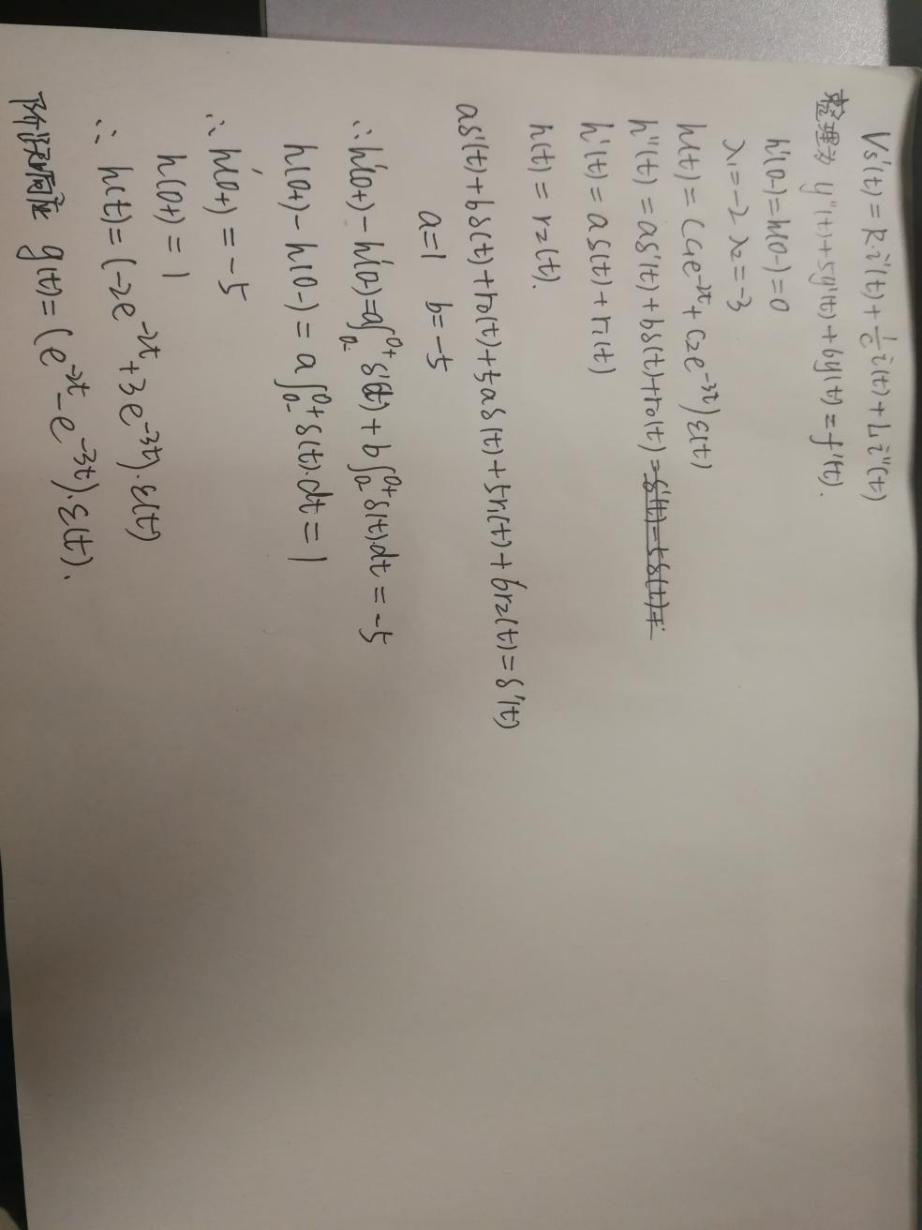 Vs'(t) = R·i'(t) + 1/C i(t) + L i''(t)
整理为 y''(t) + 5y'(t) + 6y(t) = f'(t).
h'(0-) = h(0-) = 0
λ1 = -2 λ2 = -3
h(t) = (C1e^-2t + C2e^-3t) ε(t)
h''(t) = aδ'(t) + bδ(t) + r0(t)
h'(t) = aδ(t) + r1(t)
h(t) = r2(t).
aδ'(t) + bδ(t) + r0(t) + 5aδ(t) + 5r1(t) + 6r2(t) = δ'(t)
a=1 b=-5
∴ h'(0+) - h'(0-) = a∫0-^0+ δ'(t) + b∫0-^0+ δ(t)dt = -5
h(0+) - h(0-) = a∫0-^0+ δ(t)·dt = 1
∴ h'(0+) = -5
h(0+) = 1
∴ h(t) = (-2e^-2t + 3e^-3t)·ε(t)
阶跃响应 g(t) = (e^-2t - e^-3t)·ε(t).